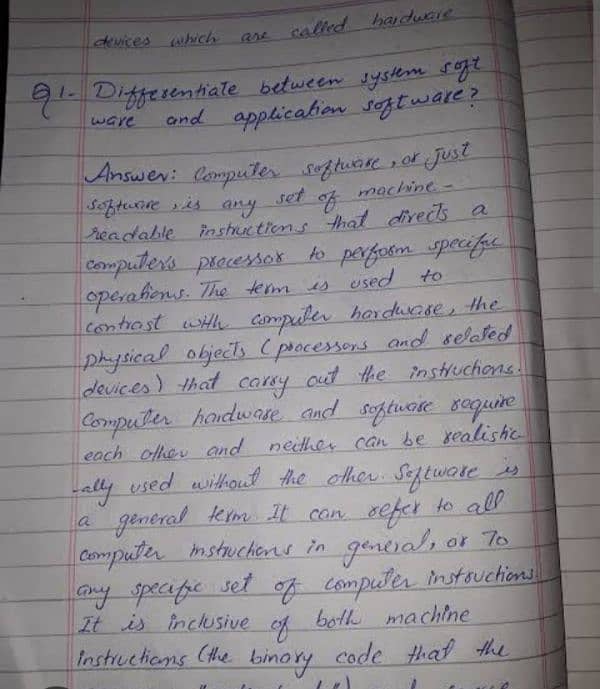 devices which are called hardware
Q1- Differentiate between system soft
ware and application software?
Answer: Computer software, or just
software, is any set of machine-
readable instructions that directs a
computer's processor to perform specific
operations. The term is used to
contrast with computer hardware, the
physical objects (processors and related
devices) that carry out the instructions.
Computer hardware and software require
each other and neither can be realistic
-ally used without the other. Software is
a general term. It can refer to all
computer instructions in general, or To
any specific set of computer instructions.
It is inclusive of both machine
instructions (the binary code that the